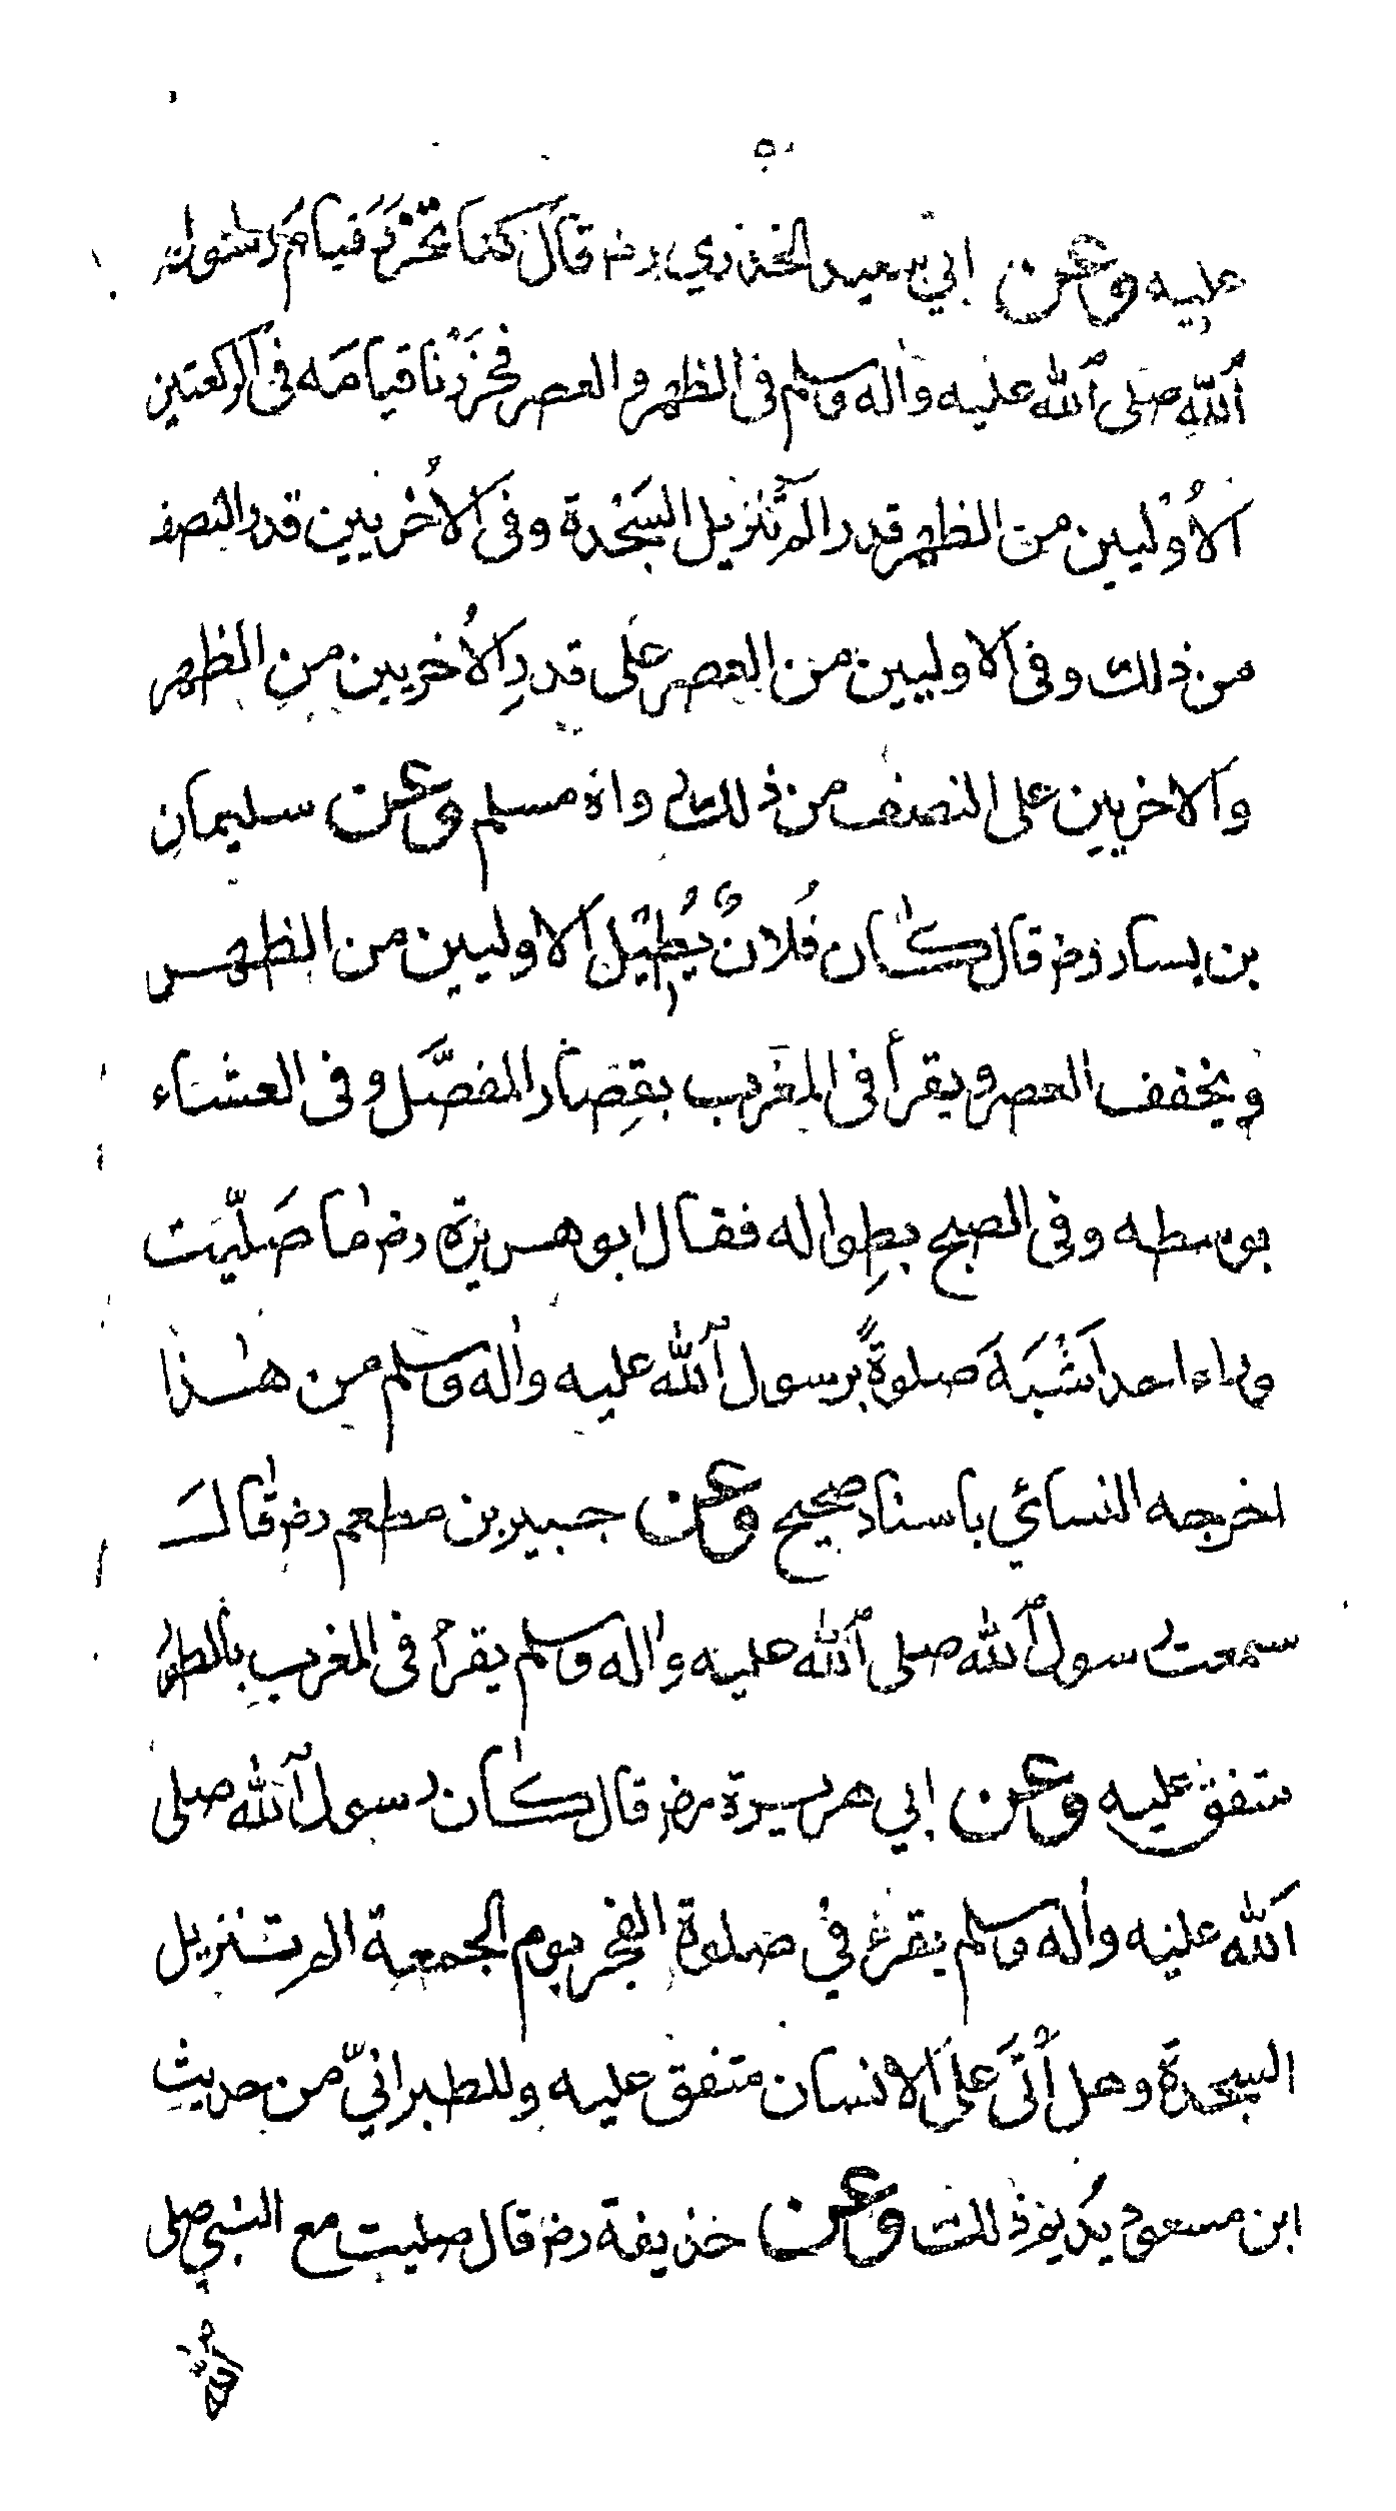 عليه وعن ابي سعيد الخدري رض قال كنا نحزر قيام رسول
ٱللّٰه صلى ٱللّٰه عليه واٰله وسلم فى الظهر والعصر فحزَرْنا قيامَه فى الركعتين
الاُوْليين من الظهر قدر الٓمٓ تنزيل السَجْدة وفى الاُخْريين قدر النصف
من ذلك وفى الاوليين من العصر على قدرِ الاُخريين منِ الظهر
والاخريينِ على النصف من ذلك رواه مسلم وعن سليمانِ
بن يسار رض قال كان فُلانٌ يُطِيْل الاوليين من الظهر
ويخفف العصر ويقرأ فى المغرب بقِصَار المفصَّل وفى العشاء
بوسطه وفى الصبح بطِواله فقال ابو هريرة رض ما صَلّيت
وراء احد اَشْبَهَ صلوةً برسول ٱللّٰه عليه واٰله وسلم من هٰذا
اخرجه النسائي باسناد صحيح وعن جبير بن مطعم رض قال
سمعت رسول ٱللّٰه صلى ٱللّٰه عليه واٰله وسلم يقرأ فى المغربِ بالطور
متفق عليه وعن ابي هريرة رض قال كان رسول ٱللّٰه صلى
ٱللّٰه عليه واٰله وسلم يقرء في صلوة الفجر يوم الجمعة الم تنزيل
السجدة وهل أَتَى علَى الانسان متفق عليه وللطبرانيّ من حديثِ
ابن مسعود يُديم ذلك وعن حذيفة رض قال صليت مع النبي صلى